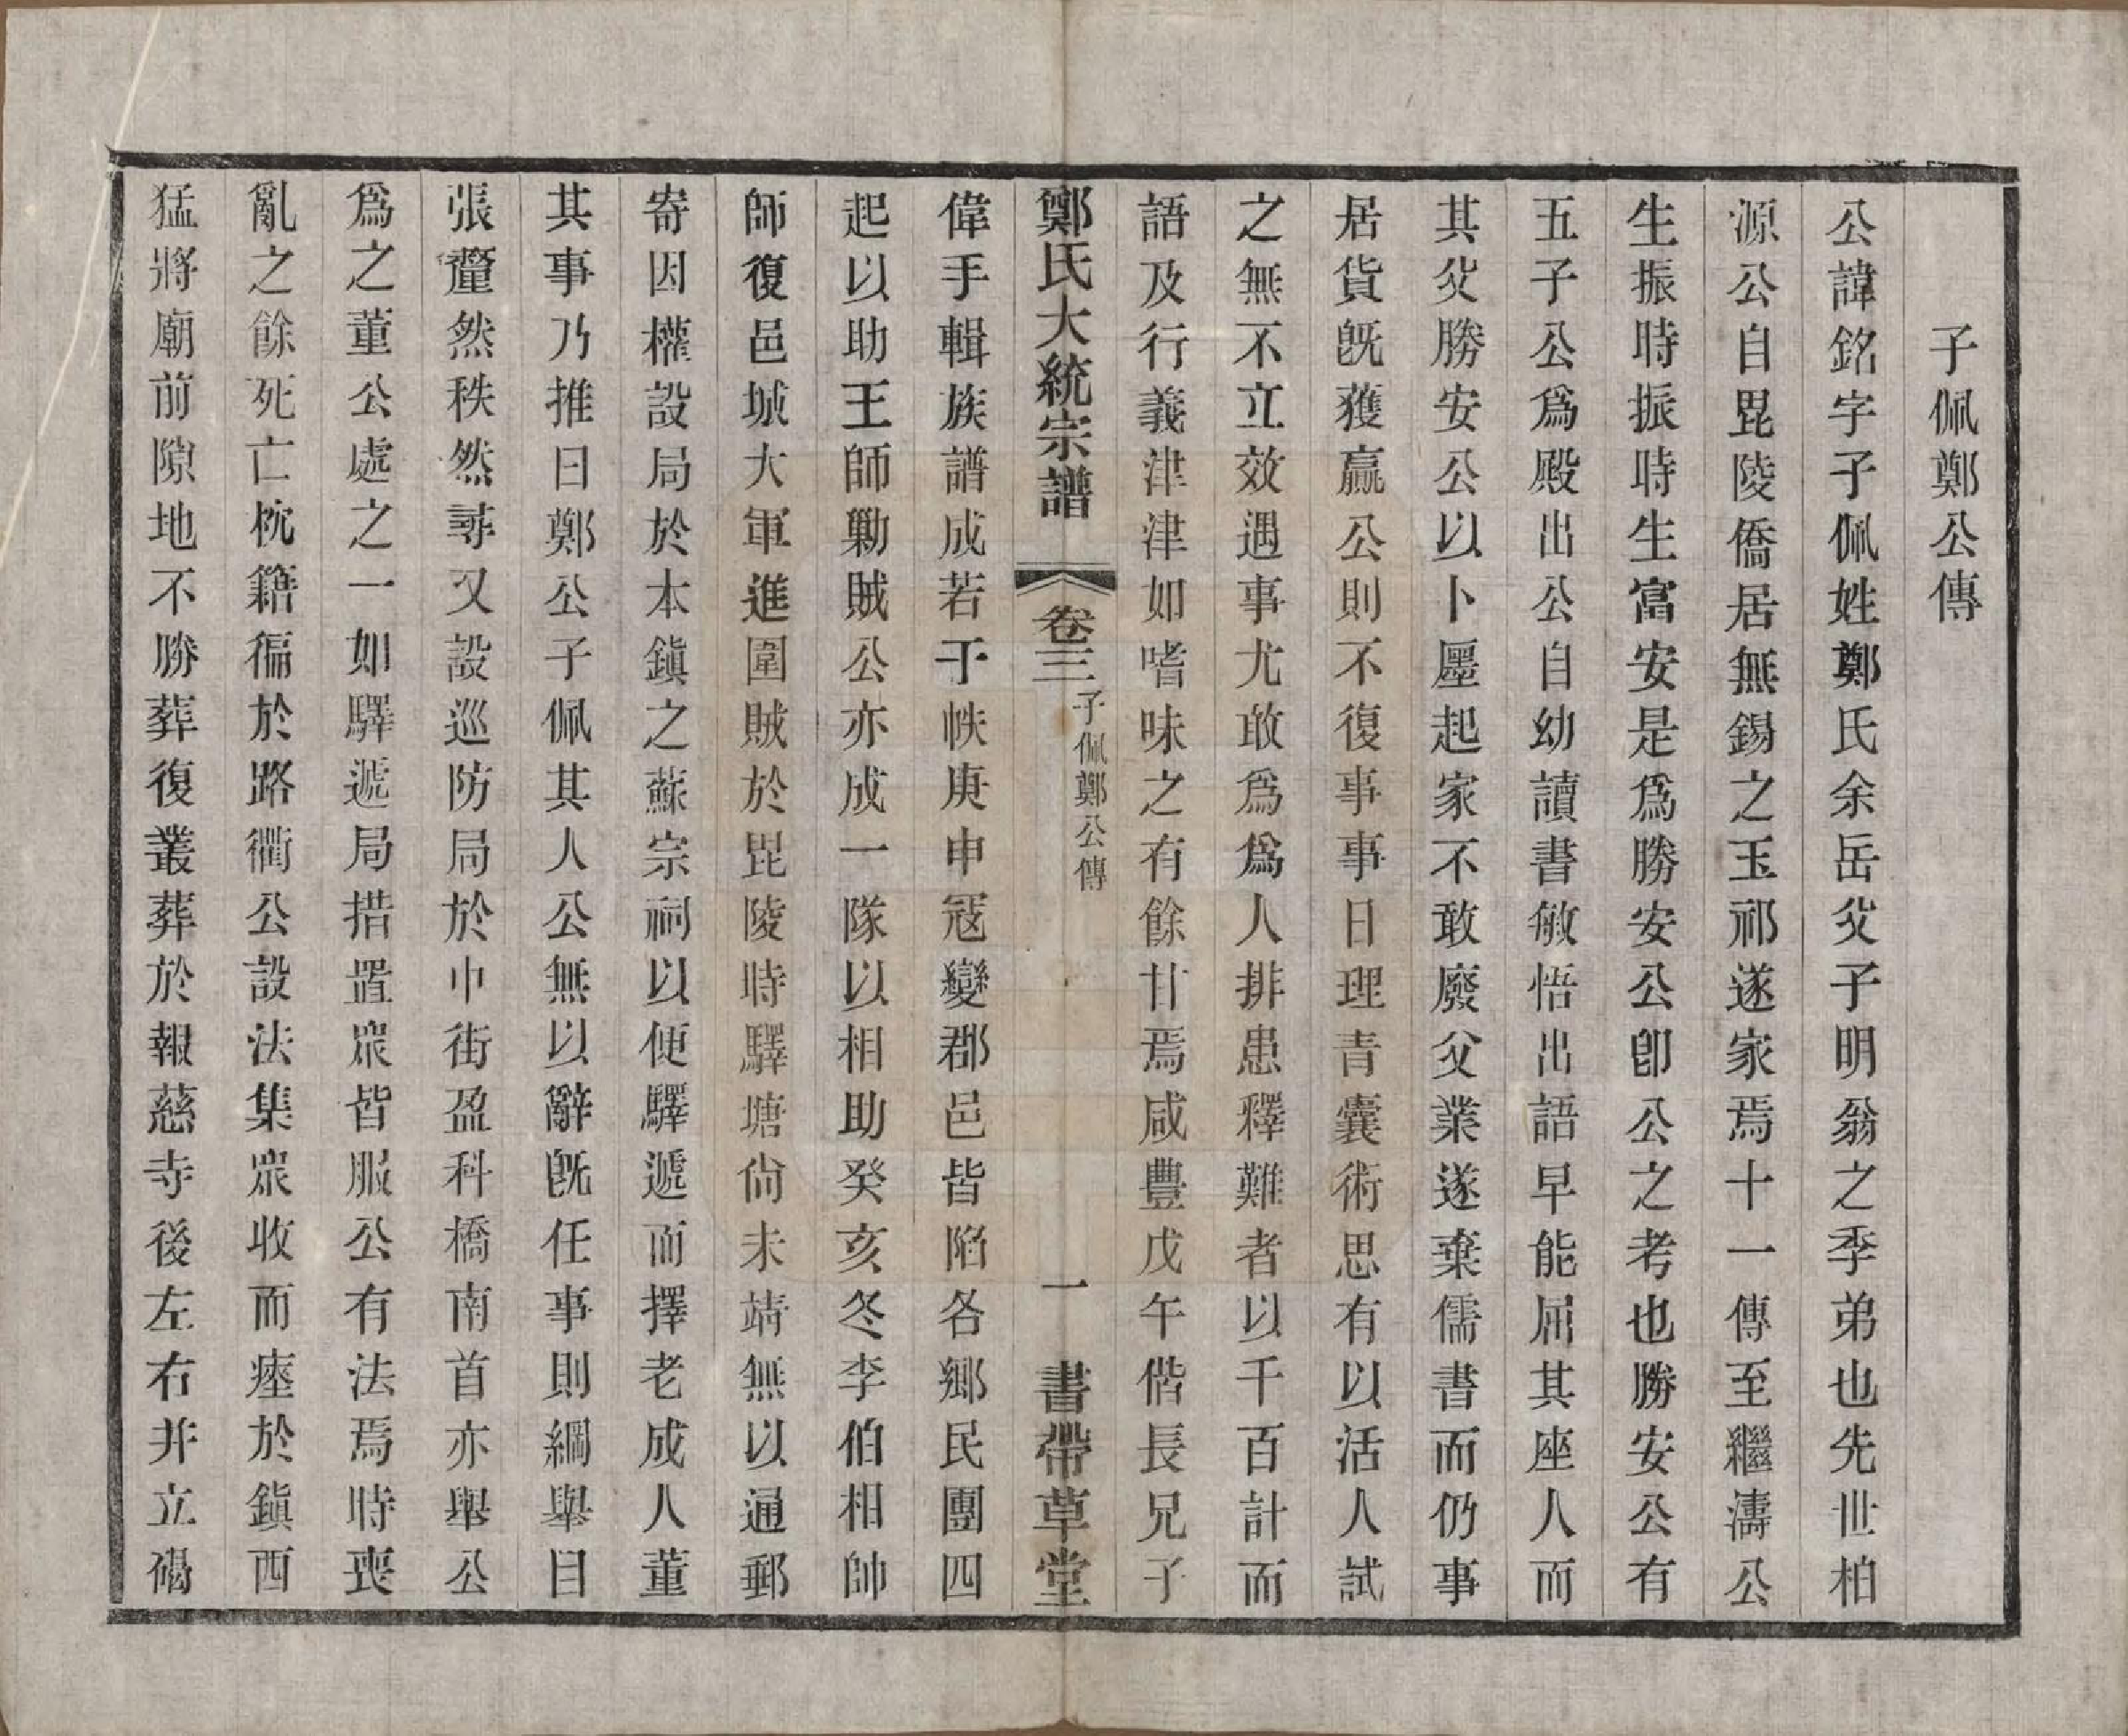 子佩鄭公傳
公諱銘字子佩姓鄭氏余岳父子明翁之季弟也先世柏
源公自毘陵僑居無錫之玉祁遂家焉十一傳至繼濤公
生振時振時生富安是爲勝安公卽公之考也勝安公有
五子公爲殿出公自幼讀書敏悟出語早能屈其座人而
其父勝安公以卜廛起家不敢廢父業遂棄儒書而仍事
居貨旣獲贏公則不復事事日理青囊術思有以活人試
之無不立效遇事尤敢爲爲人排患釋難者以千百計而
語及行義津津如嗜味之有餘甘焉咸豐戊午偕長兄子
鄭氏大統宗譜
卷三
子佩鄭公傳
一
書帶草堂
偉手輯族譜成若干帙庚申寇變郡邑皆陷各鄉民團四
起以助王師勦賊公亦成一隊以相助癸亥冬李伯相帥
師復邑城大軍進圍賊於毘陵時驛塘尙未靖無以通郵
寄因權設局於本鎭之蘇宗祠以便驛遞而擇老成人董
其事乃推曰鄭公子佩其人公無以辭旣任事則綱舉目
張釐然秩然尋又設巡防局於市街盈科橋南首亦舉公
爲之董公處之一如驛遞局措置衆皆服公有法焉時喪
亂之餘死亡枕籍徧於路衢公設法集衆收而瘞於鎭西
猛將廟前隙地不勝葬復叢葬於報慈寺後左右幷立碣